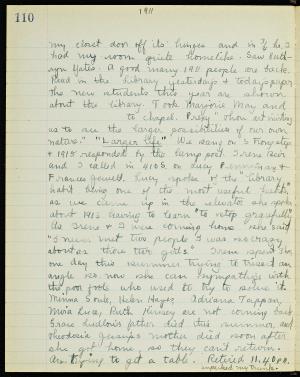 1911
110
my closet door off its hinges and in ½ hr. I
had my room quite homelike. Saw Kath-
ryn Yates. A good many 1911 people are back.
Read in the Library yesterday & today's paper
the new students this year are shown
about the library. Took Marjorie May and
to chapel. Prexy
us to see the larger possibilities of our own
nature." "Larger life" We sang on
& 1915 responded by the lamp post. Irene Beir
and I called in 410 S. on Lucy Penniman &
Frances Jewell. Lucy spoke of the "library
habit being one of the most useful habits"
as we came up in the elevator she spoke
about 1915 having to learn "to retop gracefully"
As Irene & I were coming home she said
"I never met two people I was so crazy
about as those two girls." Irene spent
one day this summer trying to trisect an
angle so now she can sympathize with
the poor fools who used to try to solve it.
Minna Soule, Helen Hayes, Adriana Tappan,
Moira Lucas, Ruth Kinsey are not coming back.
Grace Ludlow's father died this summer and
Theodosia Jessup's mother died soon after
she got home, so they can't return.
Am trying to get a table. Retired 11.40 P.M.
unpacked my trunk.